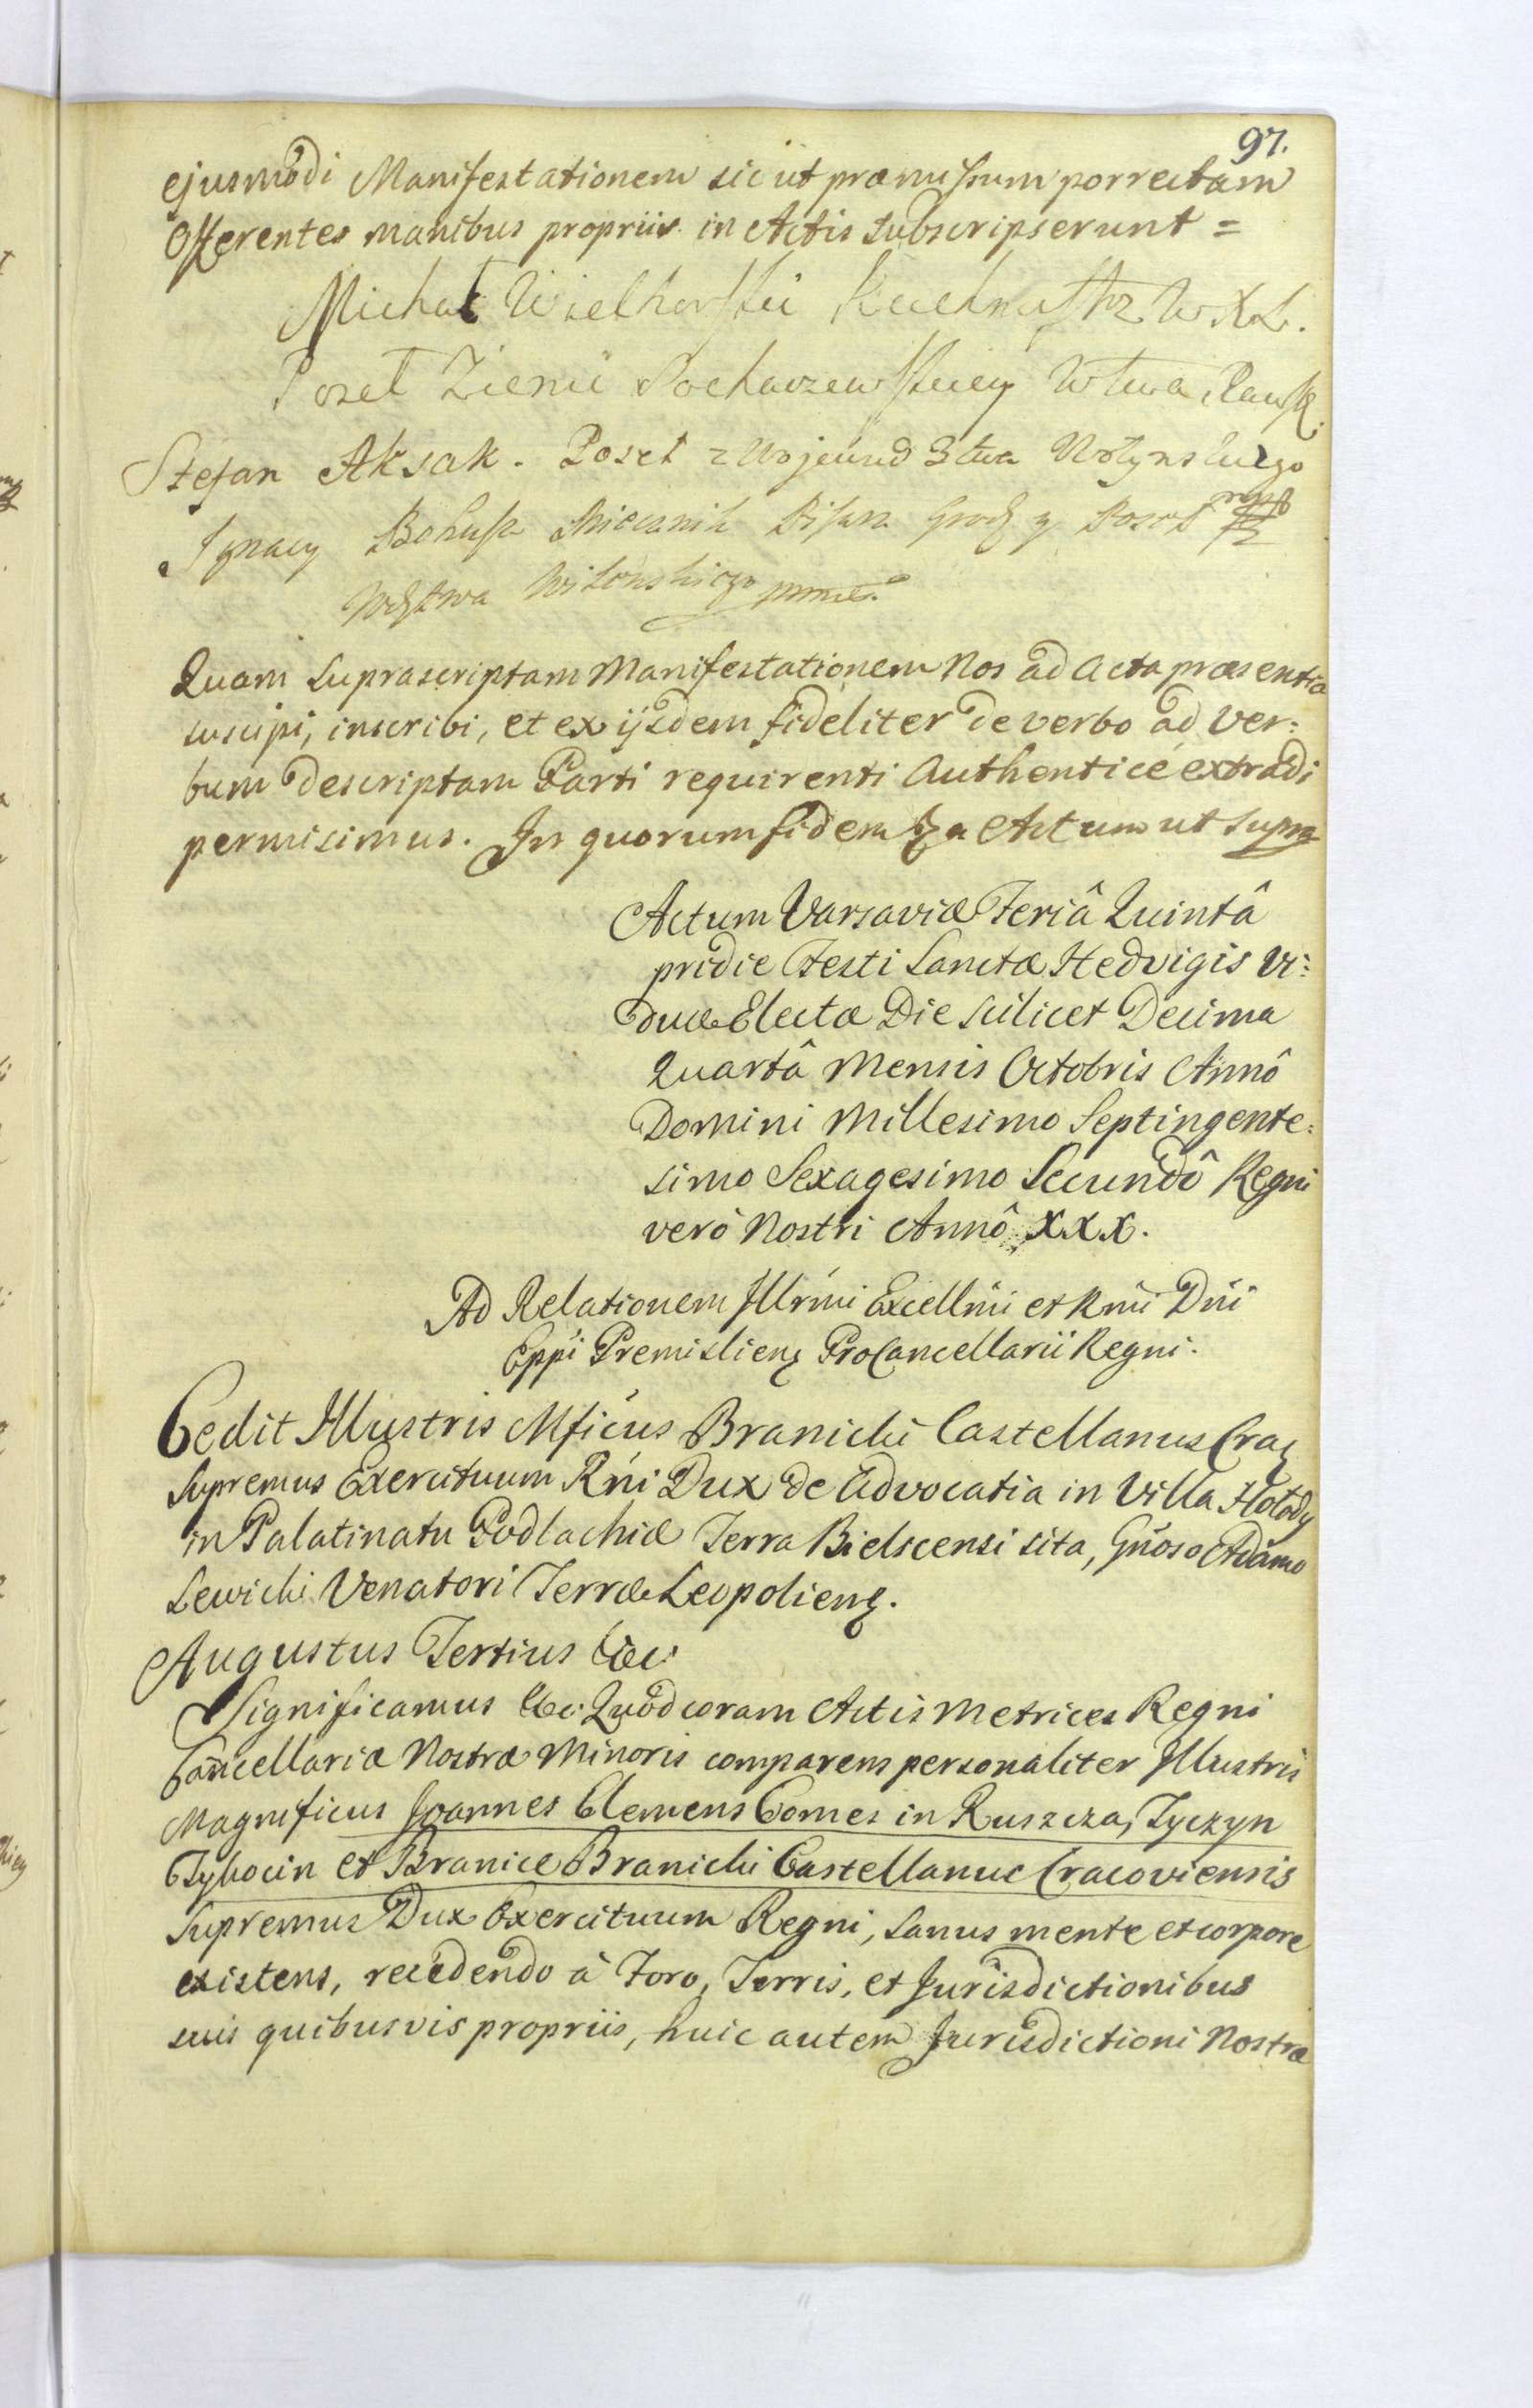 97.
ejusmodi Manifestationem sic ut præmissum porrectam
Offerentes manibus propriis in Actis subscripserunt =
Michał Wielhorski Kuchmistrz W. X. L.
Poseł Ziemi Sochaczewskiey Wtwa Rawsk.
Stefan Aksak. Poseł z Wojewudstwa Wołynskiego
Ignacy Bohusz Miecznik Pisarz Grodz y Poseł
Wdztwa Wilenskiego mmć.
Quam Suprascriptam Manifestationem Nos ad Acta præsentia
suscipi, inscribi, et ex ijsdem fideliter de verbo ad ver:
bum descriptam Parti requirenti Authenticè extradi
permisimus. In quorum fidem &a Actum ut supra
Actum Varsaviæ Feriâ Quintâ
pridie Festi Sanctæ Hedvigis Vi:
duæ Electæ Die scilicet Decima
Quartâ Mensis Octobris Annô
Domini Millesimo Septingente:
simo Sexagesimo Secundô Regni
verò Nostri Annô XXX.
Ad Relationem Illrmi Excellmi et Rmi Dni
Eppi Premislienῃ ProCancellarii Regni.
Cedit Illustris Mficus Branicki Castellanus Crac
Supremus Exercituum Rni Dux de Advocatia in Villa Hołody
in Palatinatu Podlachiæ Terra Bielscensi sita, Gnoso Adamo
Lewicki Venatori Terræ Leopolienῃ.
Augustus Tertius &c.
Significamus &c. Quod coram Actis Metrices Regni
Cancellariæ Nostræ Minoris comparens personaliter Illustris
Magnificus Joannes Clemens Comes in Ruszcza, Tyczyn
Tykocin et Branice Branicki Castellanus Cracoviensis
Supremus Dux Exercituum Regni, sanus mente et corpore
existens, recedendo à Foro, Terris, et Jurisdictionibus
suis quibusvis propriis, huic autem Jurisdictioni Nostræ